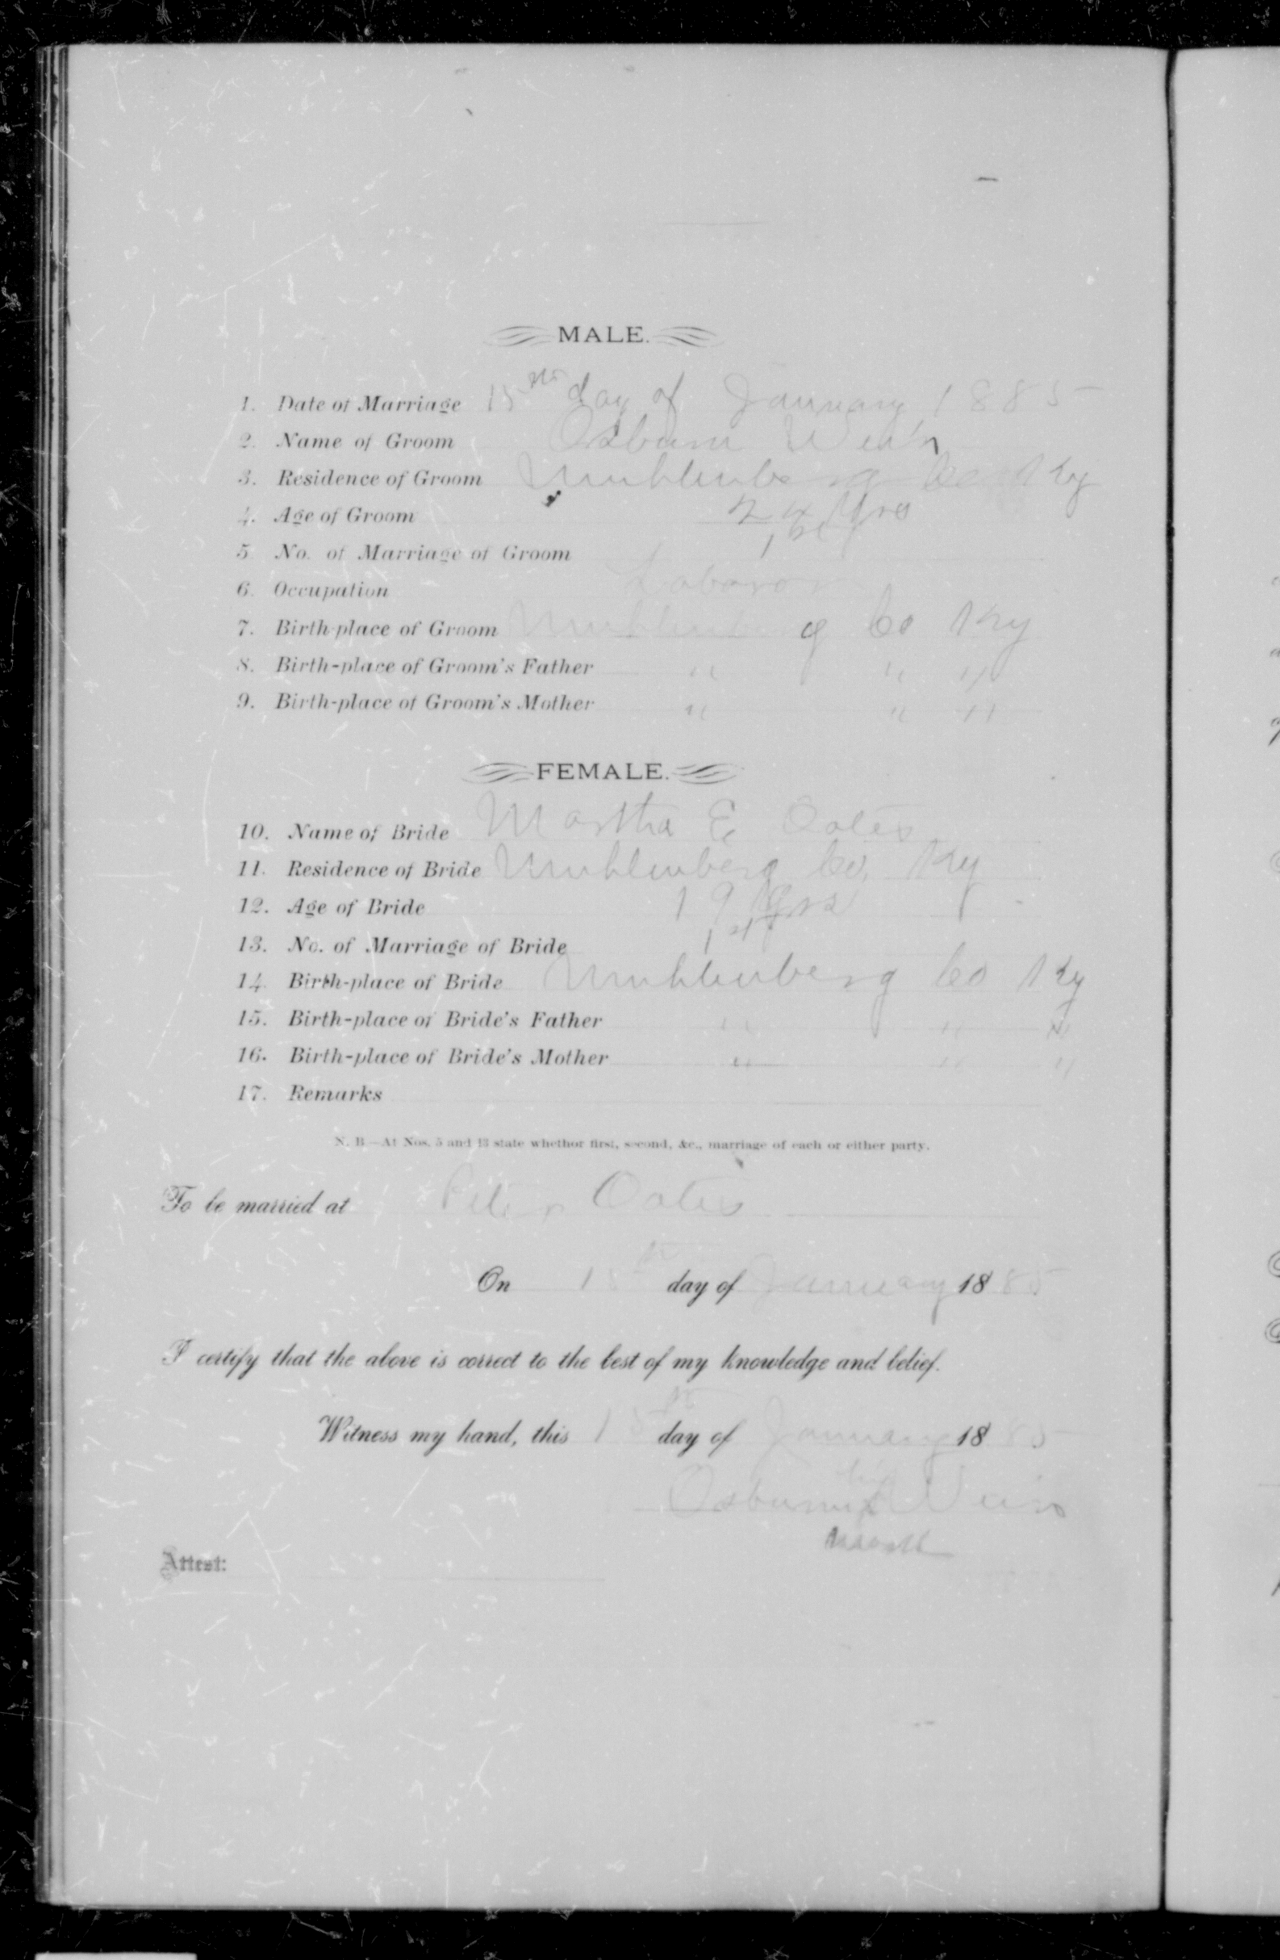 MALE.
1. Date of Marriage 15th day of January 1885
2. Name of Groom Osburn Weir
3. Residence of Groom Muhlenberg Co Ky
4. Age of Groom 24 Yrs
5. No. of Marriage of Groom 1st
6. Occupation Laborer
7. Birth-place of Groom Muhlenberg Co Ky
8. Birth-place of Groom's Father " " "
9. Birth-place of Groom's Mother " " "
FEMALE.
10. Name of Bride Martha E Oates
11. Residence of Bride Muhlenberg Co, Ky
12. Age of Bride 19 Yrs
13. No. of Marriage of Bride 1st
14. Birth-place of Bride Muhlenberg Co Ky
15. Birth-place of Bride's Father " " "
16. Birth-place of Bride's Mother " " "
17. Remarks
N. B.—At Nos. 5 and 13 state whether first, second, &c., marriage of each or either party.
To be married at Peter Oates
On 15th day of January 1885
I certify that the above is correct to the best of my knowledge and belief.
Witness my hand, this 15th day of January 1885
his
Osburn x Weir
mark
Attest: